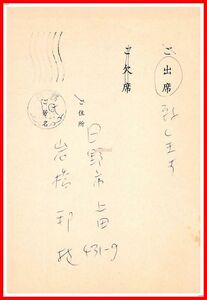 ご出席致します
ご欠席
ご住所
日野市上田
431-9
ご芳名
岩橋邦